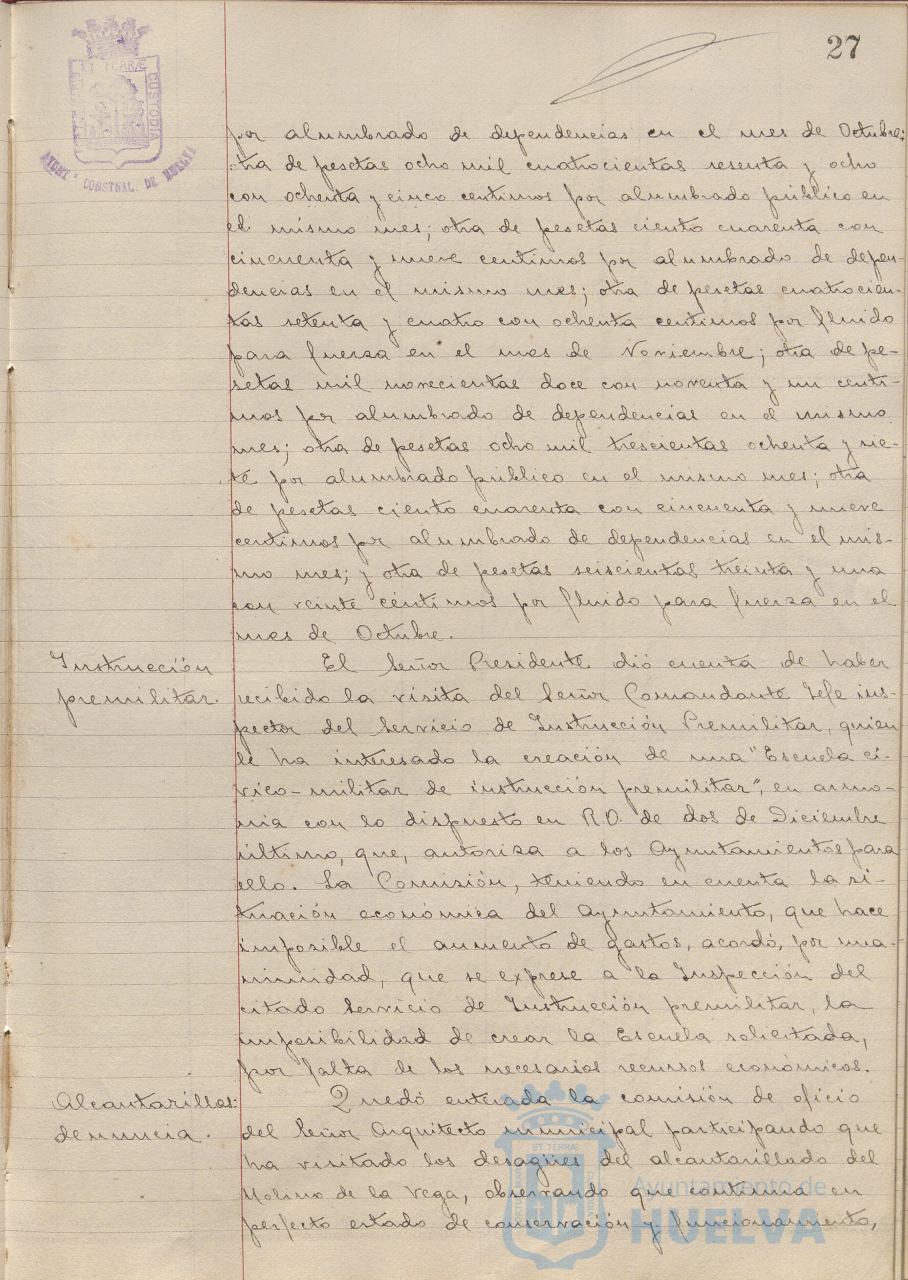 27
ET TERRÆ
CUSTODIA
AYUNT° CONSTNAL. DE HUELVA
por alumbrado de dependencias en el mes de Octubre;
otra de pesetas ocho mil cuatrocientas sesenta y ocho
con ochenta y cinco centimos por alumbrado público en
el mismo mes; otra de pesetas ciento cuarenta con
cincuenta y nueve centimos por alumbrado de depen-
dencias en el mismo mes; otra de pesetas cuatrocien-
tas setenta y cuatro con ochenta centimos por fluido
para fuerza en el mes de Noviembre; otra de pe-
setas mil novecientas doce con noventa y un centi-
mos por alumbrado de dependencias en el mismo
mes; otra de pesetas ocho mil trescientas ochenta y sie-
te por alumbrado público en el mismo mes; otra
de pesetas ciento cuarenta con cincuenta y nueve
centimos por alumbrado de dependencias en el mis-
mo mes; y otra de pesetas seiscientas treinta y una
con veinte céntimos por fluido para fuerza en el
mes de Octubre.
Instrucción
premilitar.
El Señor Presidente dió cuenta de haber
recibido la visita del Señor Comandante Jefe ins-
pector del Servicio de Instrucción Premilitar, quien
le ha interesado la creación de una "Escuela cí-
vico-militar de instrucción premilitar", en armo-
nia con lo dispuesto en R.D. de dos de Diciembre
último, que, autoriza a los Ayuntamientos para
ello. La Comisión, teniendo en cuenta la si-
tuación económica del Ayuntamiento, que hace
imposible el aumento de gastos, acordó, por una-
nimidad, que se exprese a la Inspección del
citado Servicio de Instrucción premilitar, la
imposibilidad de crear la Escuela solicitada,
por falta de los necesarios recursos económicos.
Alcantarillas:
denuncia.
Quedó enterada la comisión de oficio
del Señor Arquitecto municipal participando que
ha visitado los desagües del alcantarillado del
Molino de la Vega, observando que continua en
perfecto estado de conservación y funcionamiento,
Ayuntamiento de
HUELVA